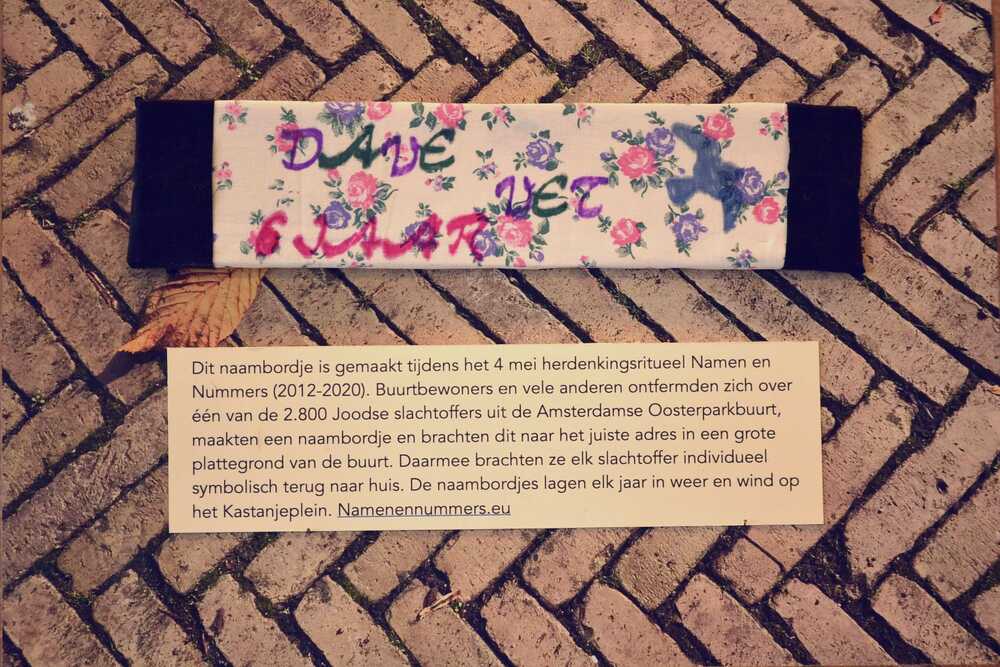 DAVE
VET
6 JAAR
Dit naambordje is gemaakt tijdens het 4 mei herdenkingsritueel Namen en
Nummers (2012-2020). Buurtbewoners en vele anderen ontfermden zich over
één van de 2.800 Joodse slachtoffers uit de Amsterdamse Oosterparkbuurt,
maakten een naambordje en brachten dit naar het juiste adres in een grote
plattegrond van de buurt. Daarmee brachten ze elk slachtoffer individueel
symbolisch terug naar huis. De naambordjes lagen elk jaar in weer en wind op
het Kastanjeplein. Namenennummers.eu